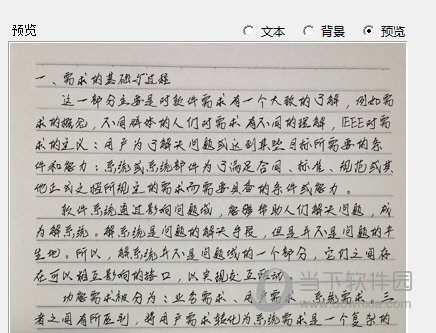 预览
文本 背景 预览
一、需求的基础与过程
这一部分主要是对软件需求有一个大致的了解，例如需
求的概念，不同群体的人们对需求有不同的理解，IEEE对需
求的定义：用户为了解决问题或达到某些目标所需要的条
件和能力；系统或系统部件为了满足合同、标准、规范或其
他正式文档所规定的需求而需要具备的条件或能力。
软件系统通过影响问题域，能够帮助人们解决问题，成
为解系统。解系统是问题的解决手段，但是并不是问题的产
生地。所以，解系统并不是问题域的一个部分，它们之间存
在可以相互影响的接口，以实现交互活动
功能需求被分为：业务需求、用户需求、系统需求，三
者之间有所区别，将用户需求转化为系统需求是一个复杂的
当下软件园